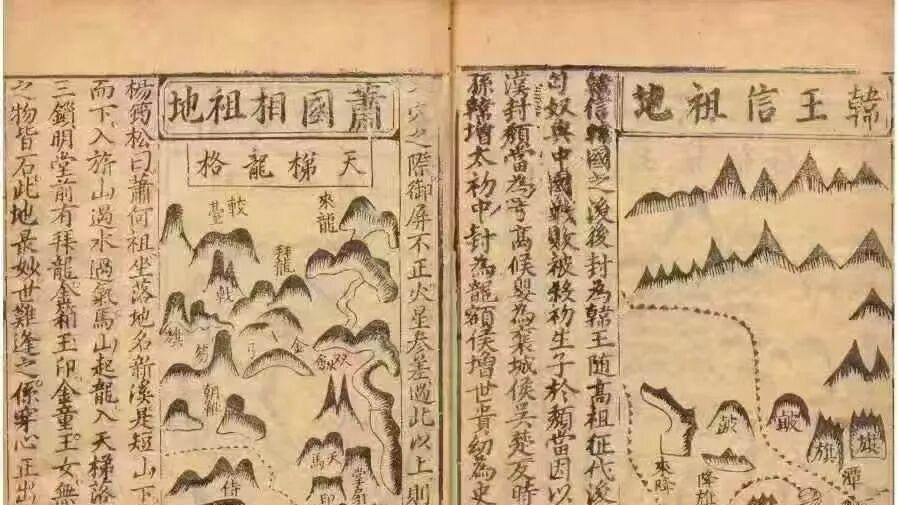 韓王信祖地
旗
旗
潭
皷
皷
降旗
來降
韓信韓國之後後封為韓王随高祖征代後
匈奴與中國戰敗被殺初生子於頹當因以
漢封頹當為弓高候嬰為襄城侯吳楚反時
孫韓增太初中封為龍額侯增世貴幼為史
穴之際御屏不正火星叅差過此以上則
蕭國相祖地
天梯龍格
來龍
鼓臺
拜龍
戟
金
弓
笏
旗
天馬
印
侍
楊筠松曰蕭何祖坐落地名新溪是短山下
而下入旂山過水過氣馬山起龍入天梯落
三鎖明堂前有拜龍金箱玉印金童玉女無
之物皆石此地最妙世難逢之係穿心正出